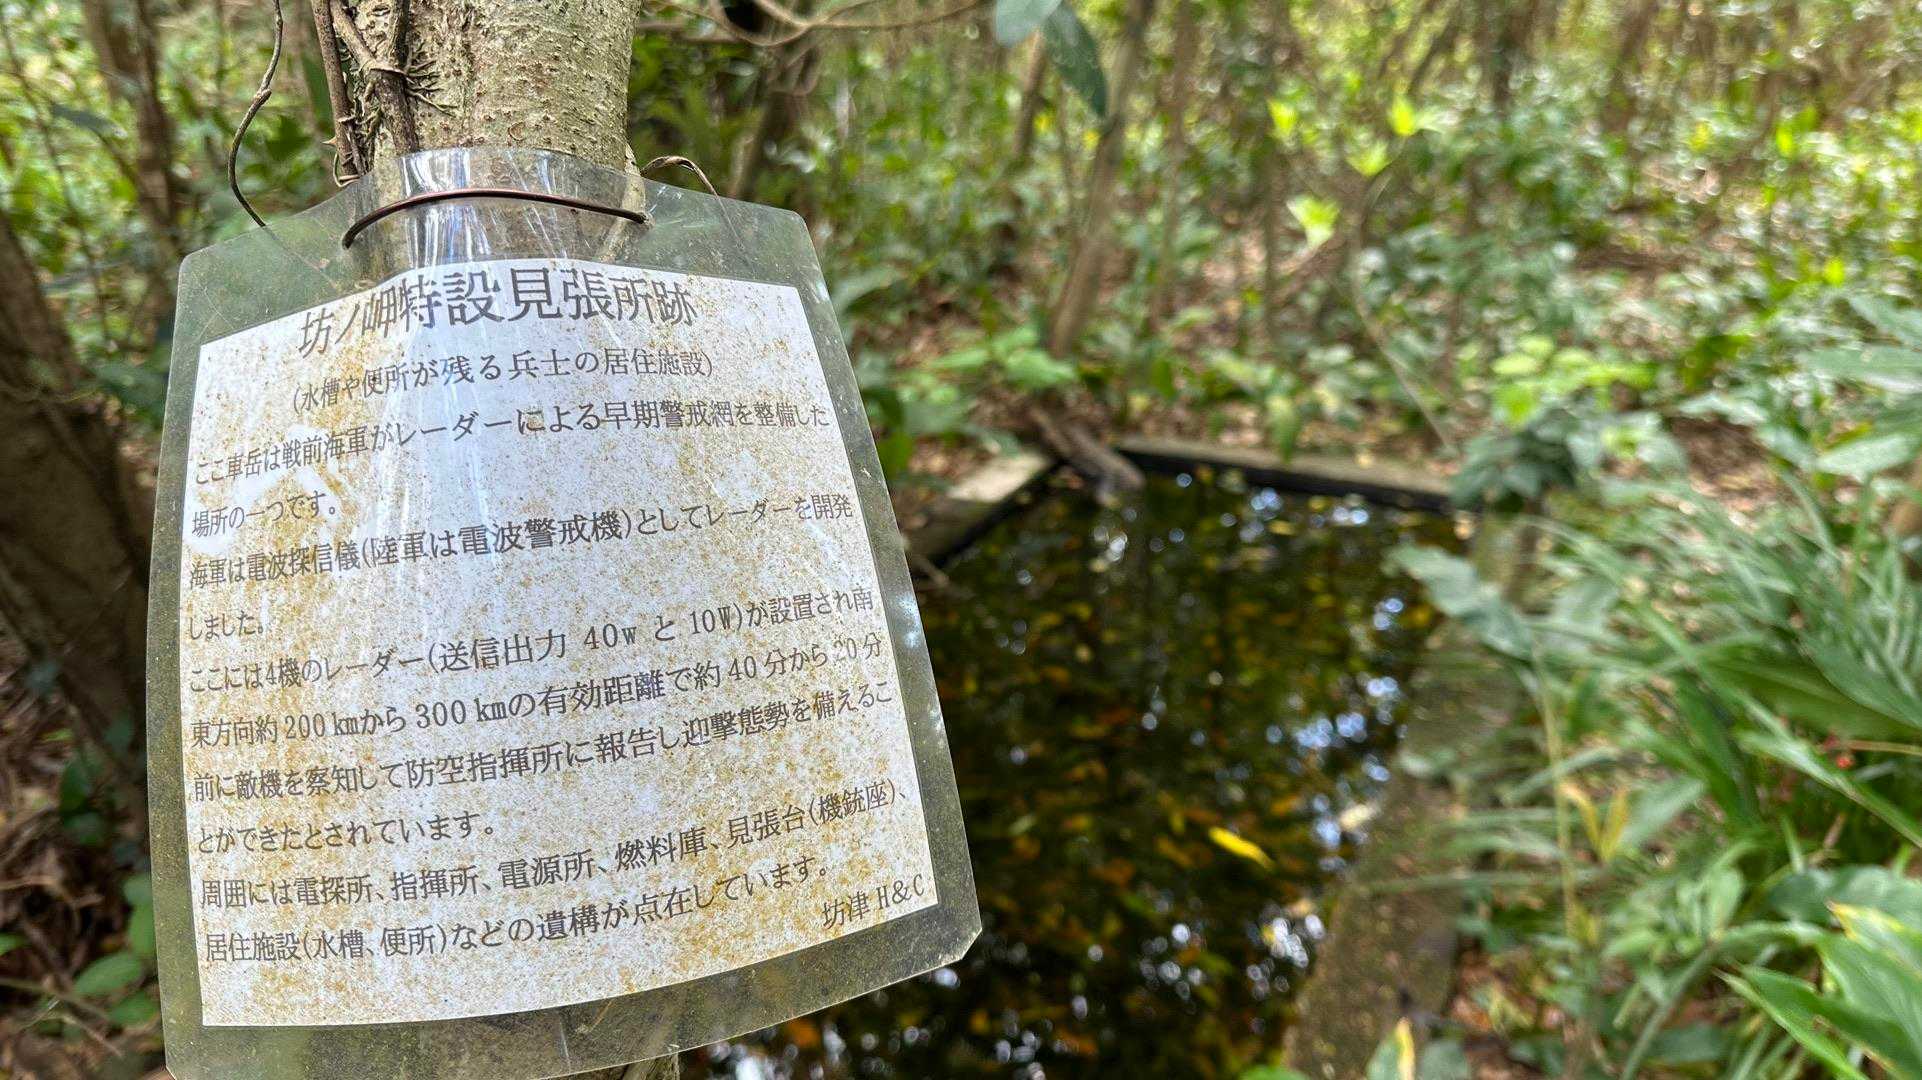 坊ノ岬特設見張所跡
(水槽や便所が残る兵士の居住施設)
ここ軍岳は戦前海軍がレーダーによる早期警戒網を整備した
場所の一つです。
海軍は電波探信儀(陸軍は電波警戒機)としてレーダーを開発
しました。
ここには4機のレーダー(送信出力 40w と 10W)が設置され南
東方向約200㎞から300㎞の有効距離で約40分から20分
前に敵機を察知して防空指揮所に報告し迎撃態勢を備えるこ
とができたとされています。
周囲には電探所、指揮所、電源所、燃料庫、見張台(機銃座)、
居住施設(水槽、便所)などの遺構が点在しています。
坊津 H&C